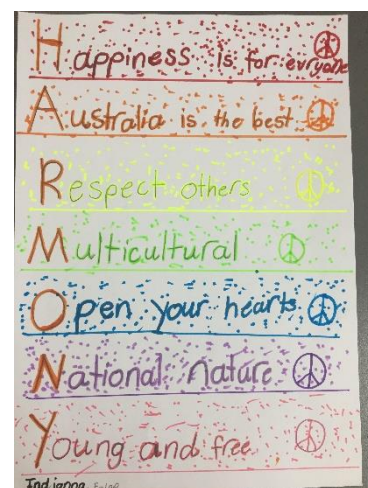 Happiness is for everyone
Australia is the best
Respect others
Multicultural
Open your hearts
National Nature
Young and free
Indianna